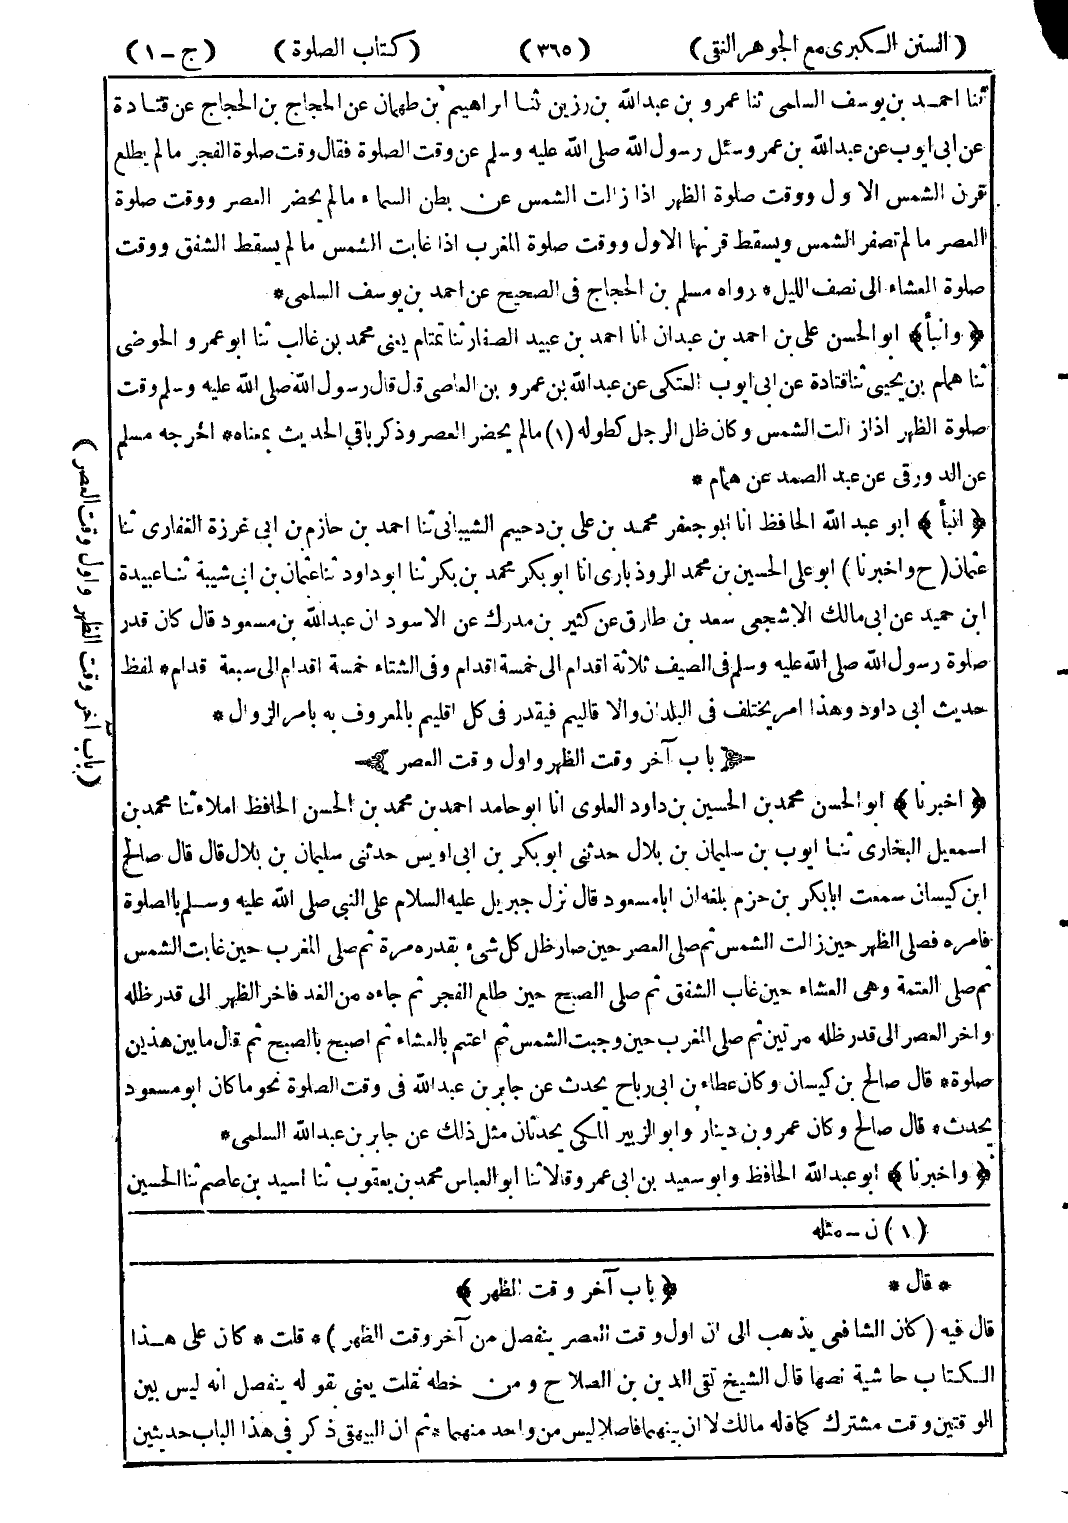 (السنن الكبرى مع الجوهر النقى) (٣٦٥) (كتاب الصلوة) (ج-١)
ثنا احمد بن يوسف السلمى ثنا عمرو بن عبدالله بن رزين ثنا ابراهيم بن طهمان عن الحجاج بن الحجاج عن قتادة
عن ابى ايوب عن عبدالله بن عمرو سئل رسول الله صلى الله عليه وسلم عن وقت الصلوة فقال وقت صلوة الفجر مالم يطلع
قرن الشمس الاول ووقت صلوة الظهر اذا زالت الشمس عن بطن السماء مالم يحضر العصر ووقت صلوة
العصر مالم تصفر الشمس ويسقط قرنها الاول ووقت صلوة المغرب اذا غابت الشمس مالم يسقط الشفق ووقت
صلوة العشاء الى نصف الليل* رواه مسلم بن الحجاج فى الصحيح عن احمد بن يوسف السلمى*
﴿وانبأ﴾ ابو الحسن على بن احمد بن عبدان انا احمد بن عبيد الصفار ثنا تمتام يعنى محمد بن غالب ثنا ابو عمرو الحوضى
ثنا همام بن يحيى ثنا قتادة عن ابى ايوب العتكى عن عبدالله بن عمرو بن العاصى قال قال رسول الله صلى الله عليه وسلم وقت
صلوة الظهر اذا زالت الشمس وكان ظل الرجل كطوله (١) مالم يحضر العصر وذكر باقى الحديث بمعناه* اخرجه مسلم
عن الدورقى عن عبد الصمد عن همام*
﴿انبأ﴾ ابو عبد الله الحافظ انا ابو جعفر محمد بن على بن دحيم الشيبانى ثنا احمد بن حازم بن ابى غرزة الغفارى ثنا
عثمان (ح واخبرنا) ابو على الحسين بن محمد الروذبارى انا ابو بكر محمد بن بكر ثنا ابو داود ثنا عثمان بن ابى شيبة ثنا عبيدة
ابن حميد عن ابى مالك الاشجعى سعد بن طارق عن كثير بن مدرك عن الاسود ان عبدالله بن مسعود قال كان قدر
صلوة رسول الله صلى الله عليه وسلم فى الصيف ثلاثة اقدام الى خمسة اقدام وفى الشتاء خمسة اقدام الى سبعة قدام* لفظ
حديث ابى داود وهذا امر يختلف فى البلدان والاقاليم فيقدر فى كل اقليم بالمعروف به بامر الزوال*
باب آخر وقت الظهر واول وقت العصر
﴿اخبرنا﴾ ابو الحسن محمد بن الحسين بن داود العلوى انا ابو حامد احمد بن محمد بن الحسن الحافظ املاء ثنا محمد بن
اسمعيل البخارى ثنا ايوب بن سليمان بن بلال حدثنى ابو بكر بن ابى اويس حدثنى سليمان بن بلال قال قال صالح
ابن كيسان سمعت ابا بكر بن حزم بلغه ان ابا مسعود قال نزل جبريل عليه السلام على النبى صلى الله عليه وسلم بالصلوة
فامره فصلى الظهر حين زالت الشمس ثم صلى العصر حين صار ظل كل شىء بقدره مرة ثم صلى المغرب حين غابت الشمس
ثم صلى العتمة وهى العشاء حين غاب الشفق ثم صلى الصبح حين طلع الفجر ثم جاءه من الغد فاخر الظهر الى قدر ظله
واخر العصر الى قدر ظله مرتين ثم صلى المغرب حين وجبت الشمس ثم اعتم بالعشاء ثم اصبح بالصبح ثم قال ما بين هذين
صلوة* قال صالح بن كيسان وكان عطاء بن ابى رباح يحدث عن جابر بن عبدالله فى وقت الصلوة نحو ما كان ابو مسعود
يحدث* قال صالح وكان عمرو بن دينار وابو الزبير المكى يحدثان مثل ذلك عن جابر بن عبدالله السلمى*
﴿واخبرنا﴾ ابو عبدالله الحافظ وابو سعيد بن ابى عمرو قالا ثنا ابو العباس محمد بن يعقوب ثنا اسيد بن عاصم ثنا الحسين
(باب آخر وقت الظهر واول وقت العصر)
(١) ن - مثله
* قال * ﴿باب آخر وقت الظهر﴾
قال فيه (كان الشافعى يذهب الى ان اول وقت العصر ينفصل من آخر وقت الظهر)* قلت* كان على هذا
الكتاب حاشية نصها قال الشيخ تقى الدين بن الصلاح ومن خطه نقلت يعنى بقوله ينفصل انه ليس بين
الوقتين وقت مشترك كما قاله مالك لا ان بينهما فاصلا ليس من واحد منهما* ثم ان البيهقى ذكر فى هذا الباب حديثين